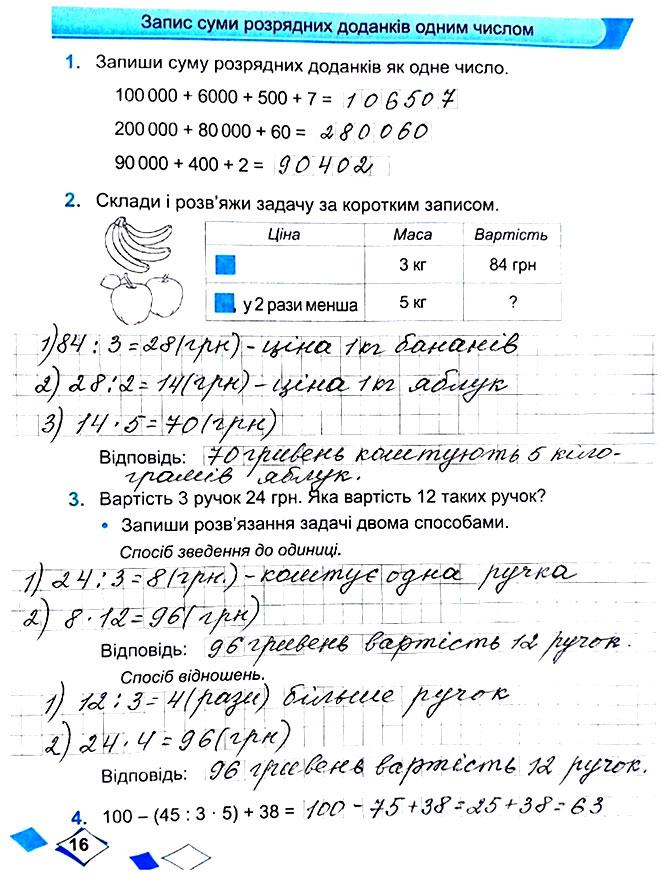 Запис суми розрядних доданків одним числом
1. Запиши суму розрядних доданків як одне число.
100 000 + 6000 + 500 + 7 = 106507
200 000 + 80 000 + 60 = 280060
90 000 + 400 + 2 = 90402
2. Склади і розв'яжи задачу за коротким записом.
Ціна Маса Вартість
3 кг 84 грн
, у 2 рази менша 5 кг ?
1) 84 : 3 = 28 (грн) - ціна 1 кг бананів
2) 28 : 2 = 14 (грн) - ціна 1 кг яблук
3) 14 · 5 = 70 (грн)
Відповідь: 70 гривень коштують 5 кіло-
грамів яблук.
3. Вартість 3 ручок 24 грн. Яка вартість 12 таких ручок?
• Запиши розв'язання задачі двома способами.
Спосіб зведення до одиниці.
1) 24 : 3 = 8 (грн.) - коштує одна ручка
2) 8 · 12 = 96 (грн)
Відповідь: 96 гривень вартість 12 ручок.
Спосіб відношень.
1) 12 : 3 = 4 (рази) більше ручок
2) 24 · 4 = 96 (грн)
Відповідь: 96 гривень вартість 12 ручок.
4. 100 – (45 : 3 · 5) + 38 = 100 - 75 + 38 = 25 + 38 = 63
16